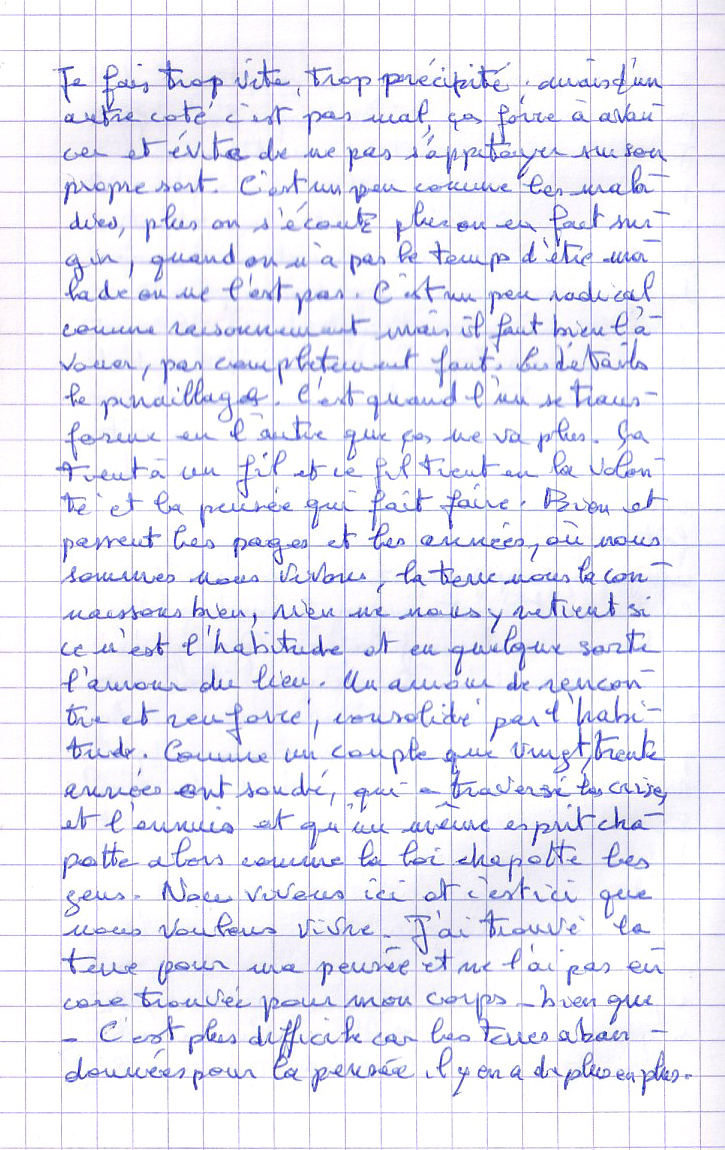 Je fais trop vite, trop précipité. mais d'un
autre coté c'est pas mal, ça force à avan-
cer et évite de ne pas s'appitoyer sur son
propre sort. C'est un peu comme les mala-
dies, plus on s'écoute plus on en fait sur-
gir, quand on n'a pas le temps d'être ma-
lade on ne l'est pas. C'est un peu radical
comme raisonnement mais il faut bien l'a-
vouer, pas completement faux. Les détails
le pinaillage. C'est quand l'un se trans-
forme en l'autre que ça ne va plus. Ça
tient à un fil et ce fil tient en la volon-
té et la pensée qui fait faire. Bien et
passent les pages et les années, où nous
sommes nous vivons, la terre nous la con-
naissons bien, rien ne nous y retient si
ce n'est l'habitude et en quelque sorte
l'amour du lieu. Un amour de rencon-
tre et renforcé, consolidé par l'habi-
tude. Comme un couple que vingt, trente
années ont soudé, qui a traversé les crises,
et l'ennuis et qu'un même esprit cha-
potte alors comme la loi chapotte les
gens. Nous vivons ici et c'est ici que
nous voulons vivre. J'ai trouvé la
terre pour ma pensée et ne l'ai pas en-
core trouvée pour mon corps - bien que
- C'est plus difficile car les terres aban-
données pour la pensée il y en a de plus en plus.